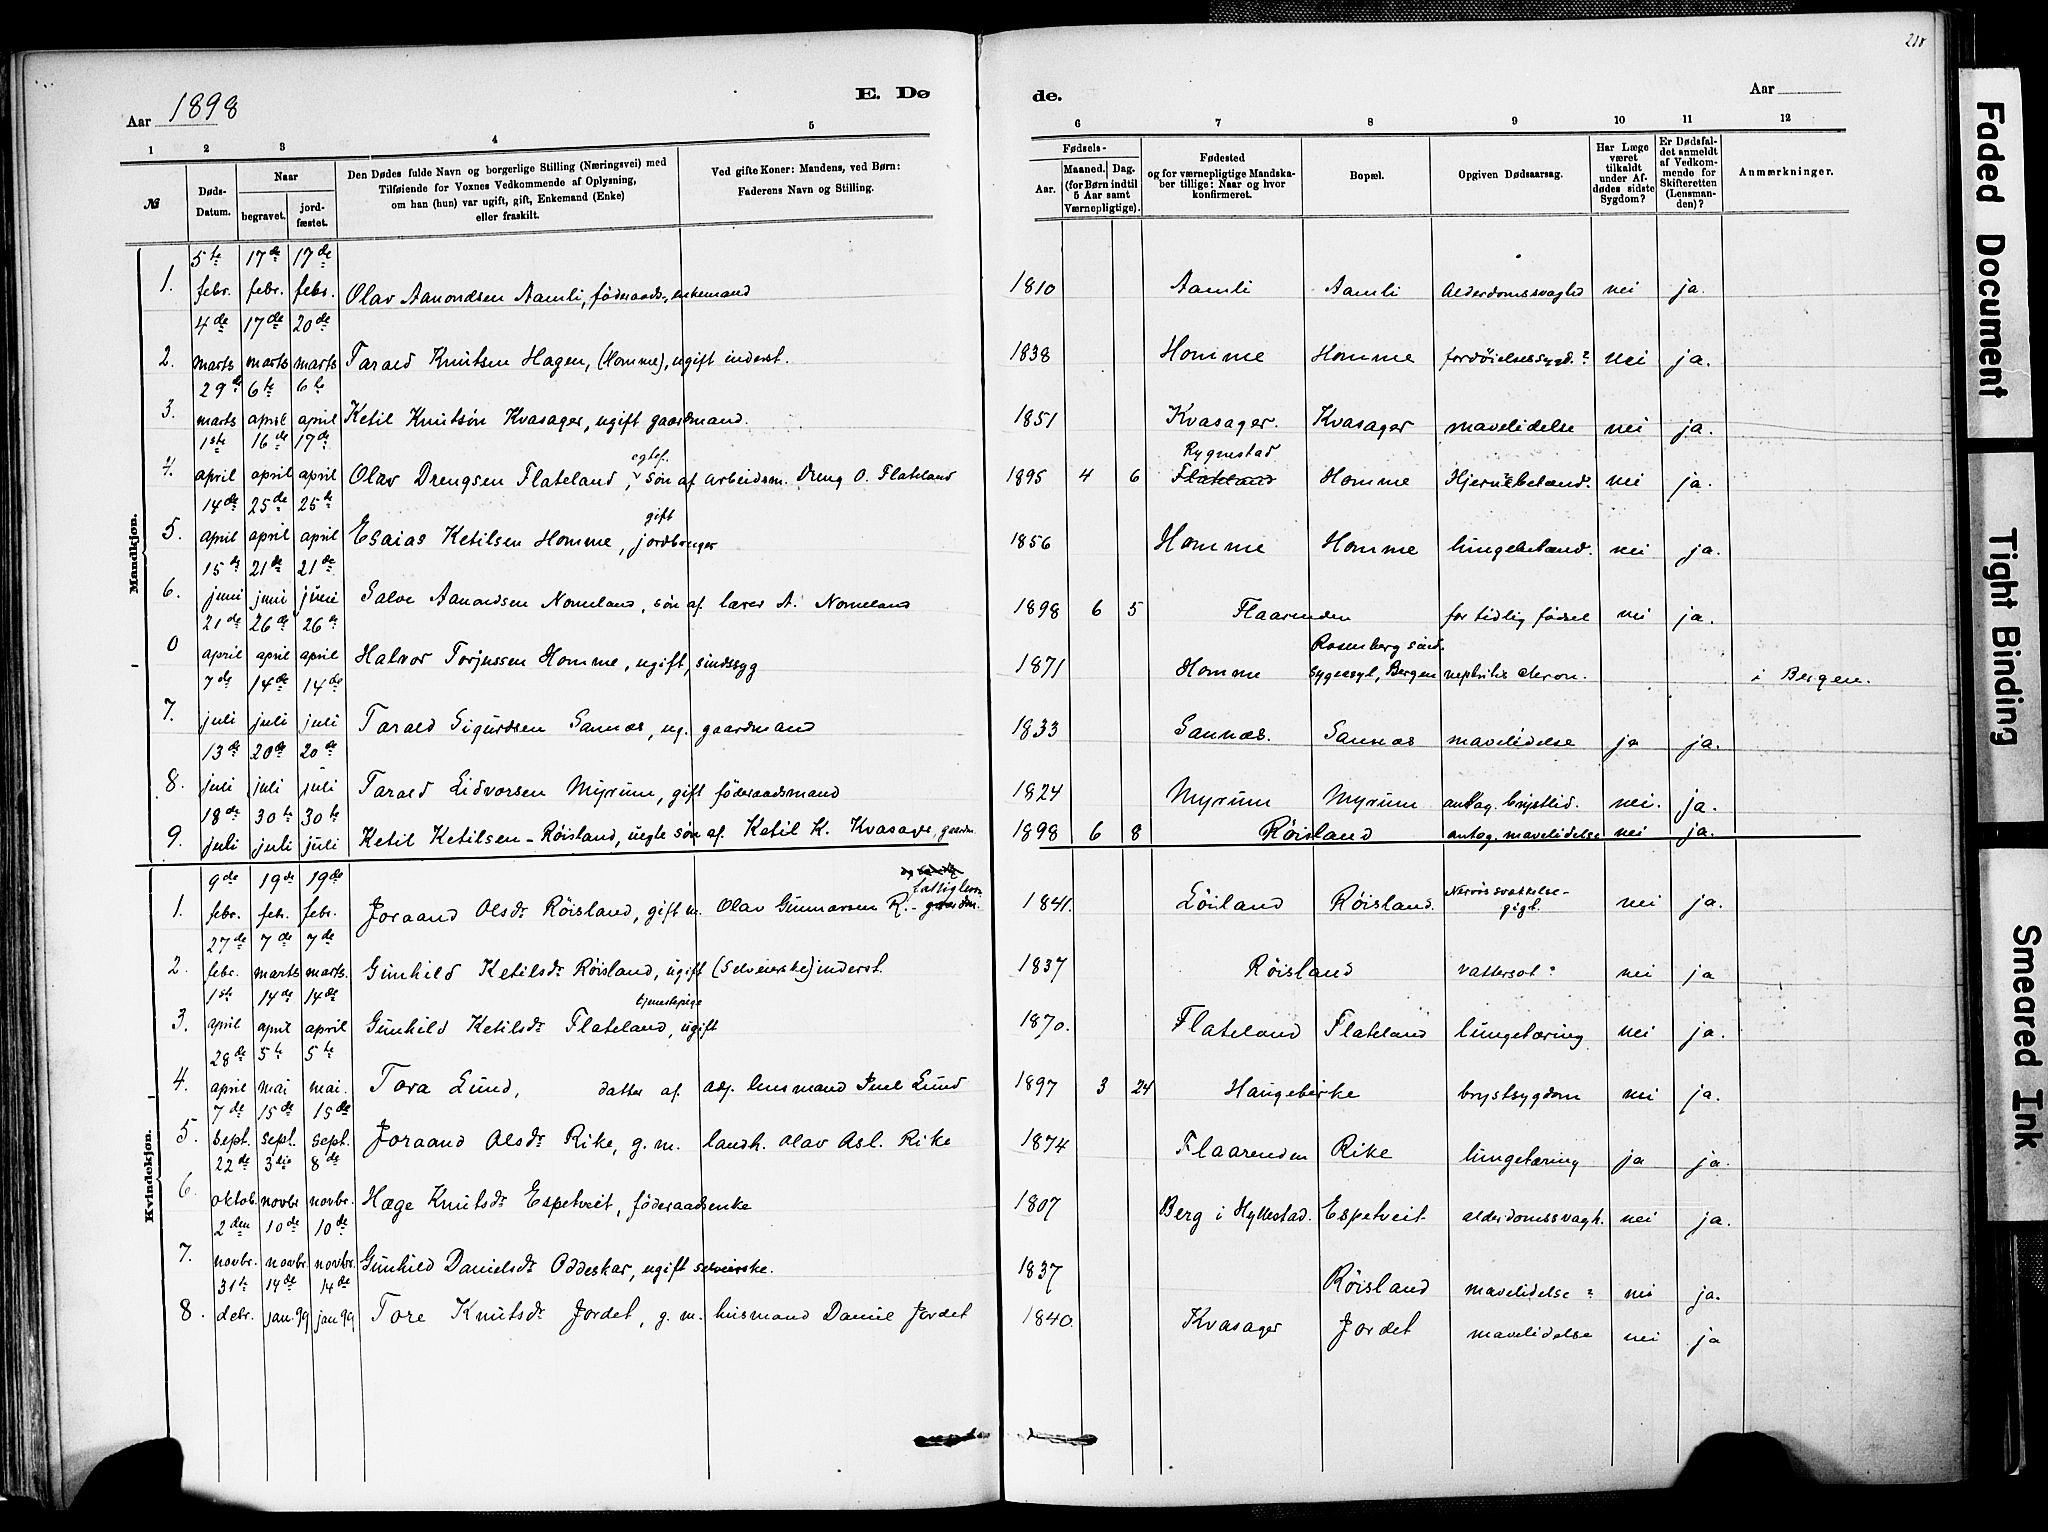 210
Aar 1898
E. Dø
de.
Aar
1 2 3 4 5 6 7 8 9 10 11 12
№
Døds-Datum.
Naar
begravet.
jordfæstet.
Den Dødes fulde Navn og borgerlige Stilling (Næringsvei) med
Tilføiende for Voxnes Vedkommende af Oplysning,
om han (hun) var ugift, gift, Enkemand (Enke)
eller fraskilt.
Ved gifte Koner: Mandens, ved Børn:
Faderens Navn og Stilling.
Fødsels-
Aar.
Maaned.
Dag.
(for Børn indtil
5 Aar samt
Værnepligtige).
Fødested
og for værnepligtige Mandska-
ber tillige: Naar og hvor
konfirmeret.
Bopæl.
Opgiven Dødsaarsag.
Har Læge
været
tilkaldt
under Af-
dødes sidste
Sygdom?
Er Dødsfal-
det anmeldt
af Vedkom-
mende for
Skifteretten
(Lensman-
den)?
Anmærkninger.
Mandkjøn.
1. 5te febr. 17de febr. 17de febr. Olav Aanondsen Aamli, føderaads, enkemand 1810 Aamli Aamli Alderdomssvaghd nei ja.
2. 4de marts 17de marts 20de marts Tarald Knutsen Hagen, (Homme), ugift inderst. 1838 Homme Homme fordøielsessygd.? nei ja.
3. 29de marts 6te april 6te april Ketil Knutsøn Kvasager, ugift gaardmand. 1851 Kvasager. Kvasager mavelidelse nei ja.
4. 1ste april 16de april 17de april Olav Drengsen Flateland, egtef. søn af arbeidsm. Dreng O. Flateland 1895 4 6 Rygnestad Flateland Homme Hjernebetænd. nei ja.
5. 14de april 25de april 25te april Esaias Ketilsen Homme, gift jordbruger 1856 Homme Homme lungebetænd. nei ja.
6. 15de juni 21de juni 21de juni Salve Aanondsen Nomeland, søn af lærer A. Nomeland 1898 6 5 Flaarenden for tidlig fødsel nei ja.
0 21de april 26de april 26de april Halvor Torjussen Homme, ugift, sindssyg 1871 Homme Rosenberg sind. sygeasyl, Bergen nephritis chron. i Bergen.
7. 7de juli 14de juli 14de juli Tarald Sigurdsen Sannæs, ug. gaardmand 1833 Sannæs. Sannæs mavelidelse ja ja.
8. 13de juli 20de juli 20de juli Tarald Lidvorsen Myrum, gift føderaadsmand 1824 Myrum Myrum antag. brystlid. nei. ja.
9. 18de juli 30te juli 30te juli Ketil Ketilsen Røisland, uegte søn af Ketil K. Kvasager, gaardm. 1898 6 8 Røisland antag. mavelidelse nei ja.
Kvindekjøn.
1. 9de febr. 19de febr. 19de febr. Joraand Olsdr Røisland, gift m. Olav Gunnarsen R. fattiglem 1841. Løiland Røisland. Nervøs svækkelse- gigt. nei ja.
2. 27de febr. 7de marts 7de marts. Gunhild Ketilsdr Røisland, ugift (Selveierske) inderst. 1837 Røisland vattersot? nei ja
3. 1ste april 14de april 14de april Gunhild Ketilsdr Flateland, ugift tjenestepige 1870. Flateland Flateland lungetæring nei ja.
4. 28de april 5te mai 5te mai. Tora Lund, datter af adj. husmand Juel Lund 1897 3 24 Haugebirke brystsygdom nei ja.
5. 7de sept. 15de sept. 15de sept. Joraand Olsdr Rike, g. m. landh. Olav Asl. Rike 1874 Flaarenden Rike lungetæring ja ja.
6. 22de oktob. 3die novbr 8de novbr. Hæge Knutsdr Espetveit, føderaadsenke 1807 Berg i Hyllestad. Espetveit alderdomssvagh. nei ja.
7. 2den novbr. 10de novbr. 10de novbr. Gunhild Danielsdr Oddeskar, ugift selveierske. 1837 Røisland mavelidelse? nei ja.
8. 31te debr. 14de jan. 99 14de jan 99 Tore Knutsdr Jordet, g. m. husmand Daniel Jordet 1840. Kvasager Jordet mavelidelse nei ja
Faded Document
Tight Binding
Smeared Ink